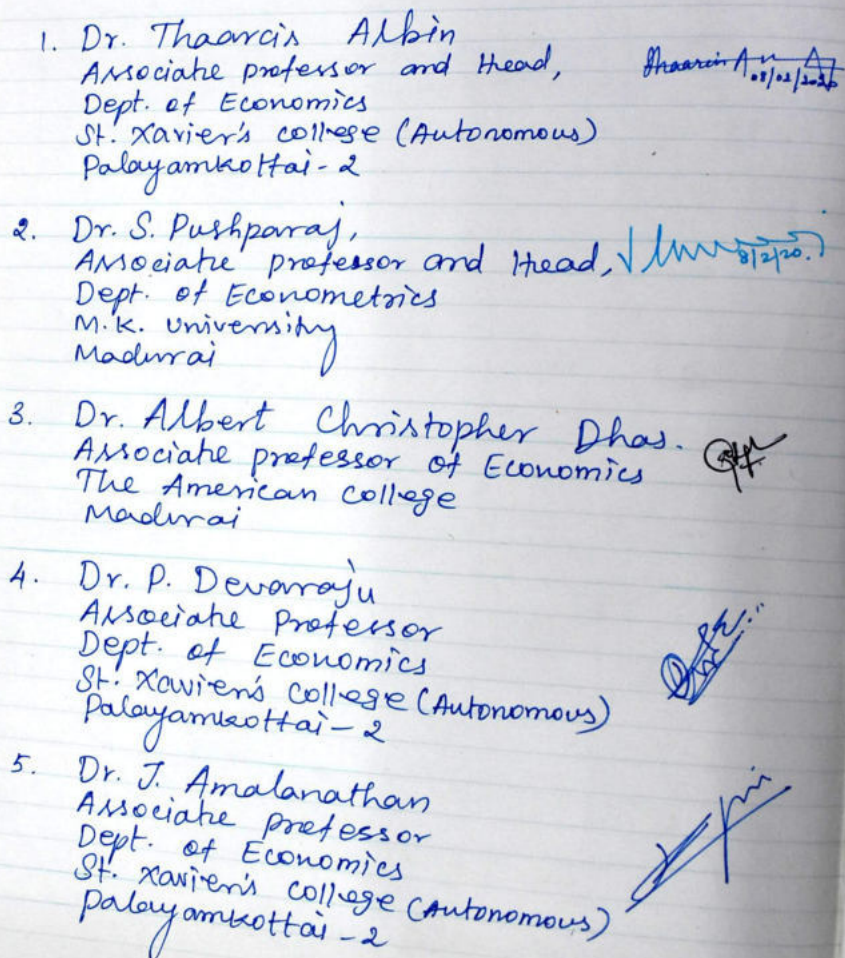 1. Dr. Thaarcis Albin
Associate professor and Head,
08/02/2020
Dept. of Economics
St. Xavier's college (Autonomous)
Palayamkottai - 2
2. Dr. S. Pushparaj,
Associate professor and Head,
8/2/20.
Dept. of Econometrics
M.K. University
Madurai
3. Dr. Albert Christopher Dhas.
Associate professor of Economics
The American college
Madurai
4. Dr. P. Devaraju
Associate Professor
Dept. of Economics
St. Xavier's college (Autonomous)
Palayamkottai - 2
5. Dr. J. Amalanathan
Associate professor
Dept. of Economics
St. Xavier's college (Autonomous)
Palayamkottai - 2